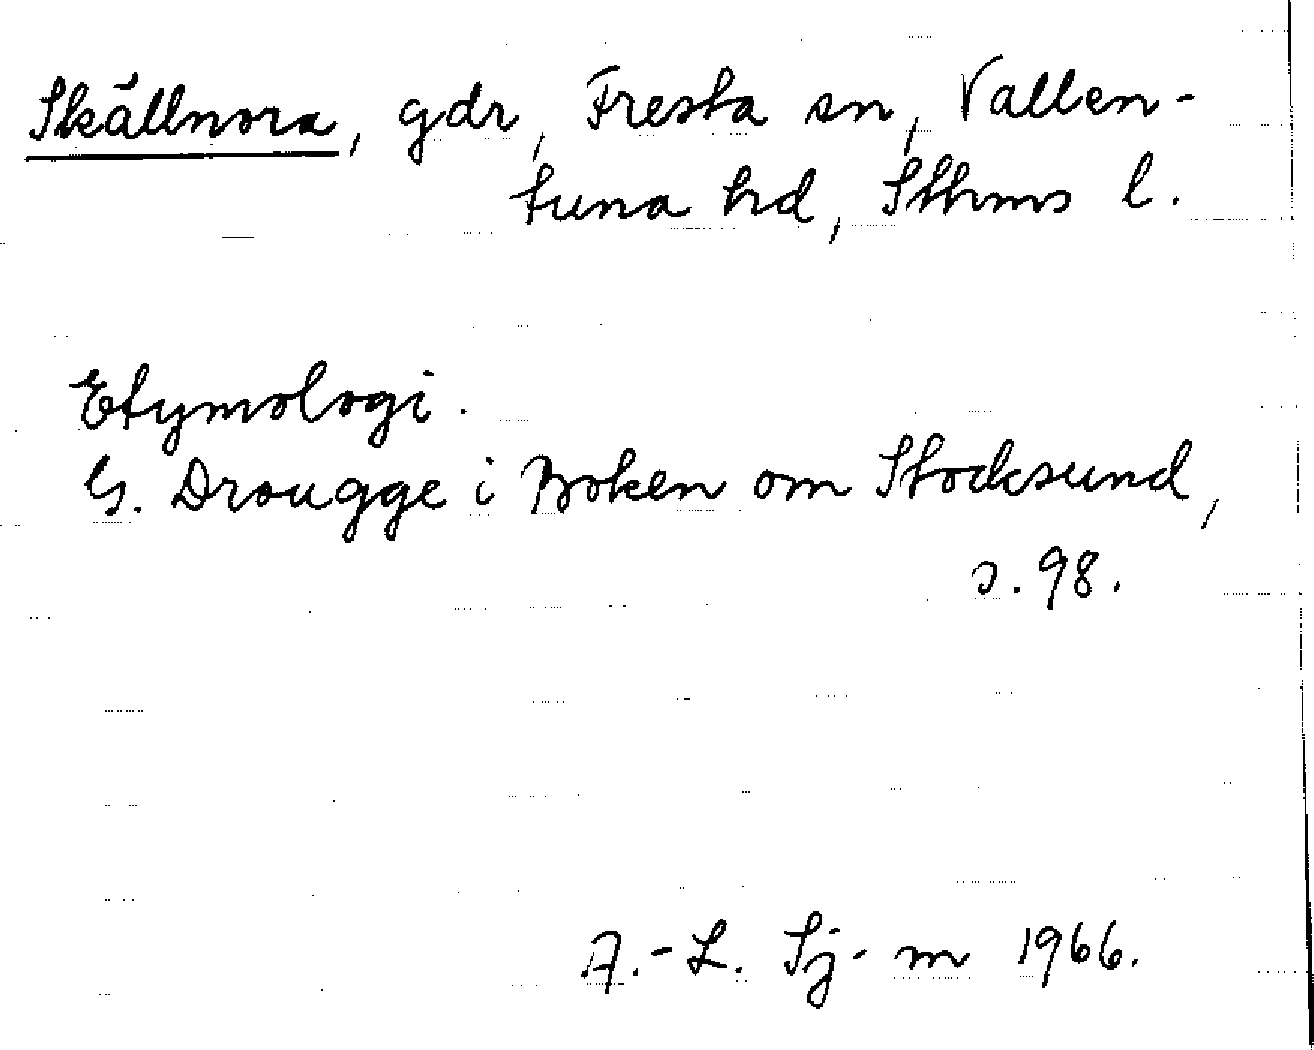 Skällnora, gdr, Fresta sn, Vallen-
tuna hd, Sthms l.
Etymologi.
G. Drougge i Boken om Stocksund,
s. 98.
A.-L. Sj-m 1966.